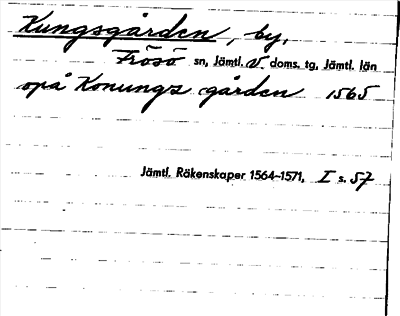 Kungsgården, by,
Frösö sn, Jämtl. V doms. tg, Jämtl. län
opå Konungz gården 1565
Jämtl. Räkenskaper 1564-1571, I s. 57